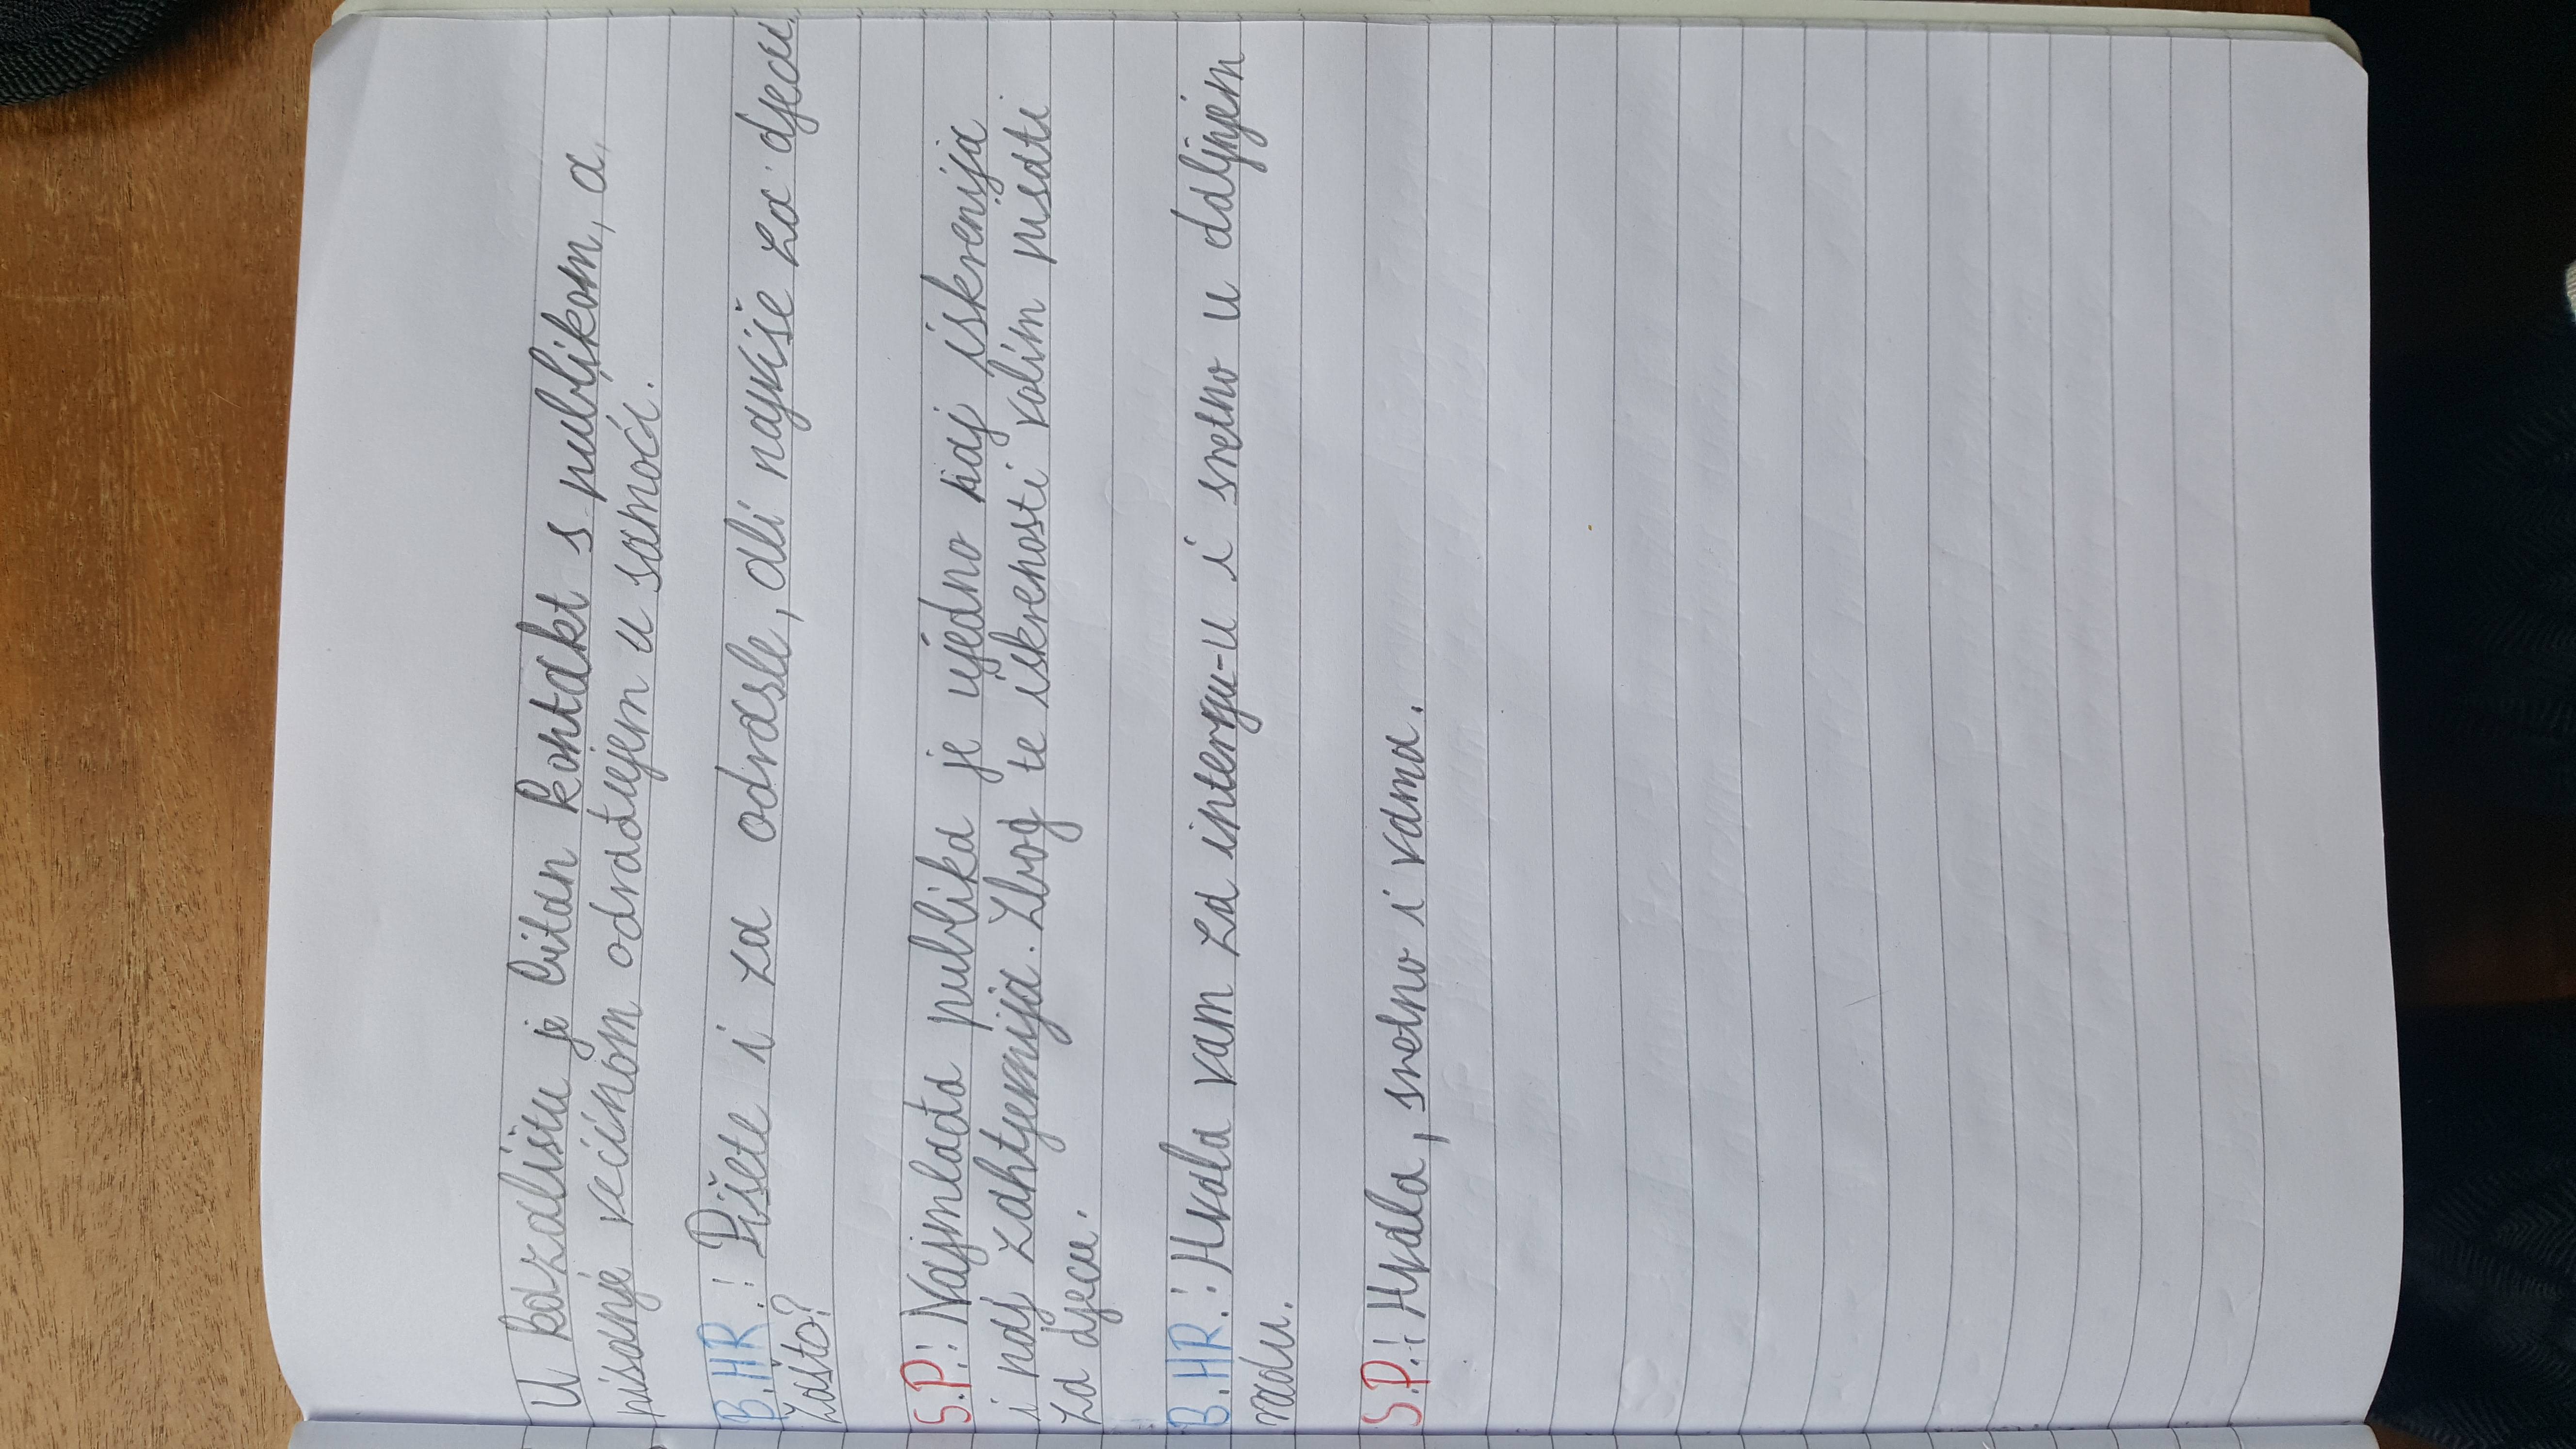 U kazalištu je bitan kontakt s publikom, a
pisanje većinom odrađujem u samoći.
B.HR.: Pišete i za odrasle, ali najviše za djecu.
Zašto?
S.P.: Najmlađa publika je ujedno naj iskrenija
i naj zahtjevnija. Zbog te iskrenosti volim pisati
za djecu.
B.HR.: Hvala vam za intervju-u i sretno u daljnjem
radu.
S.P.: Hvala, sretno i vama.